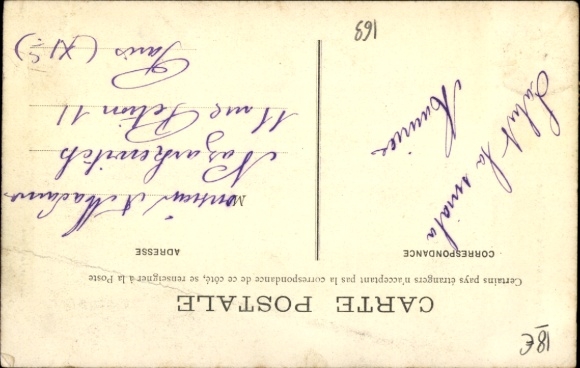 18€
CARTE POSTALE
Certains pays étrangers n'acceptant pas la correspondance de ce côté, se renseigner à la Poste
CORRESPONDANCE
Salut la
Maurice
163
ADRESSE
M
Monsieur & Madame
11 rue Pétion 11
Paris (XIe)